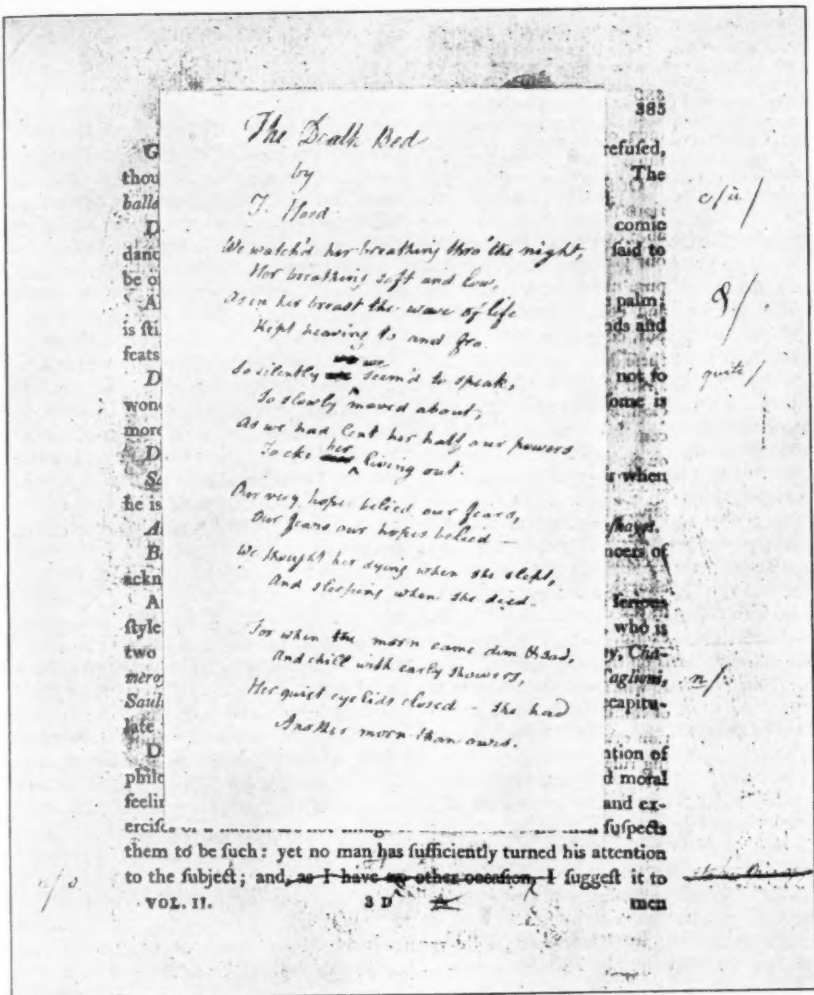 385
The Death Bed
by
T. Hood
We watch'd her breathing thro' the night,
Her breathing soft and low,
As in her breast the wave of life
Kept heaving to and fro.
So silently we seem'd to speak,
So slowly moved about,
As we had lent her half our powers
To eke her living out.
Our very hopes belied our fears,
Our fears our hopes belied —
We thought her dying when she slept,
And sleeping when she died.
For when the morn came dim & sad,
And chill with early showers,
Her quiet eyelids closed – she had
Another morn than ours.
G refuſed,
thou The
balle
D comic
danc ſaid to
be o
A palm;
is ſti nds and
feats
D not to
wond ome is
more
D
Sa when
he is
A
B ncers of
ackn
A ſerious
ſtyle , who is
two Cha-
mero aglioni,
Saul ecapitu-
late
D ntion of
philo d moral
feelin and ex-
erciſes of a nation are not things ſuſpects
them to be ſuch: yet no man has ſufficiently turned his attention
to the ſubject; and, as I have no other occaſion, I ſuggeſt it to
VOL. II. 3 D men
quite/
n/